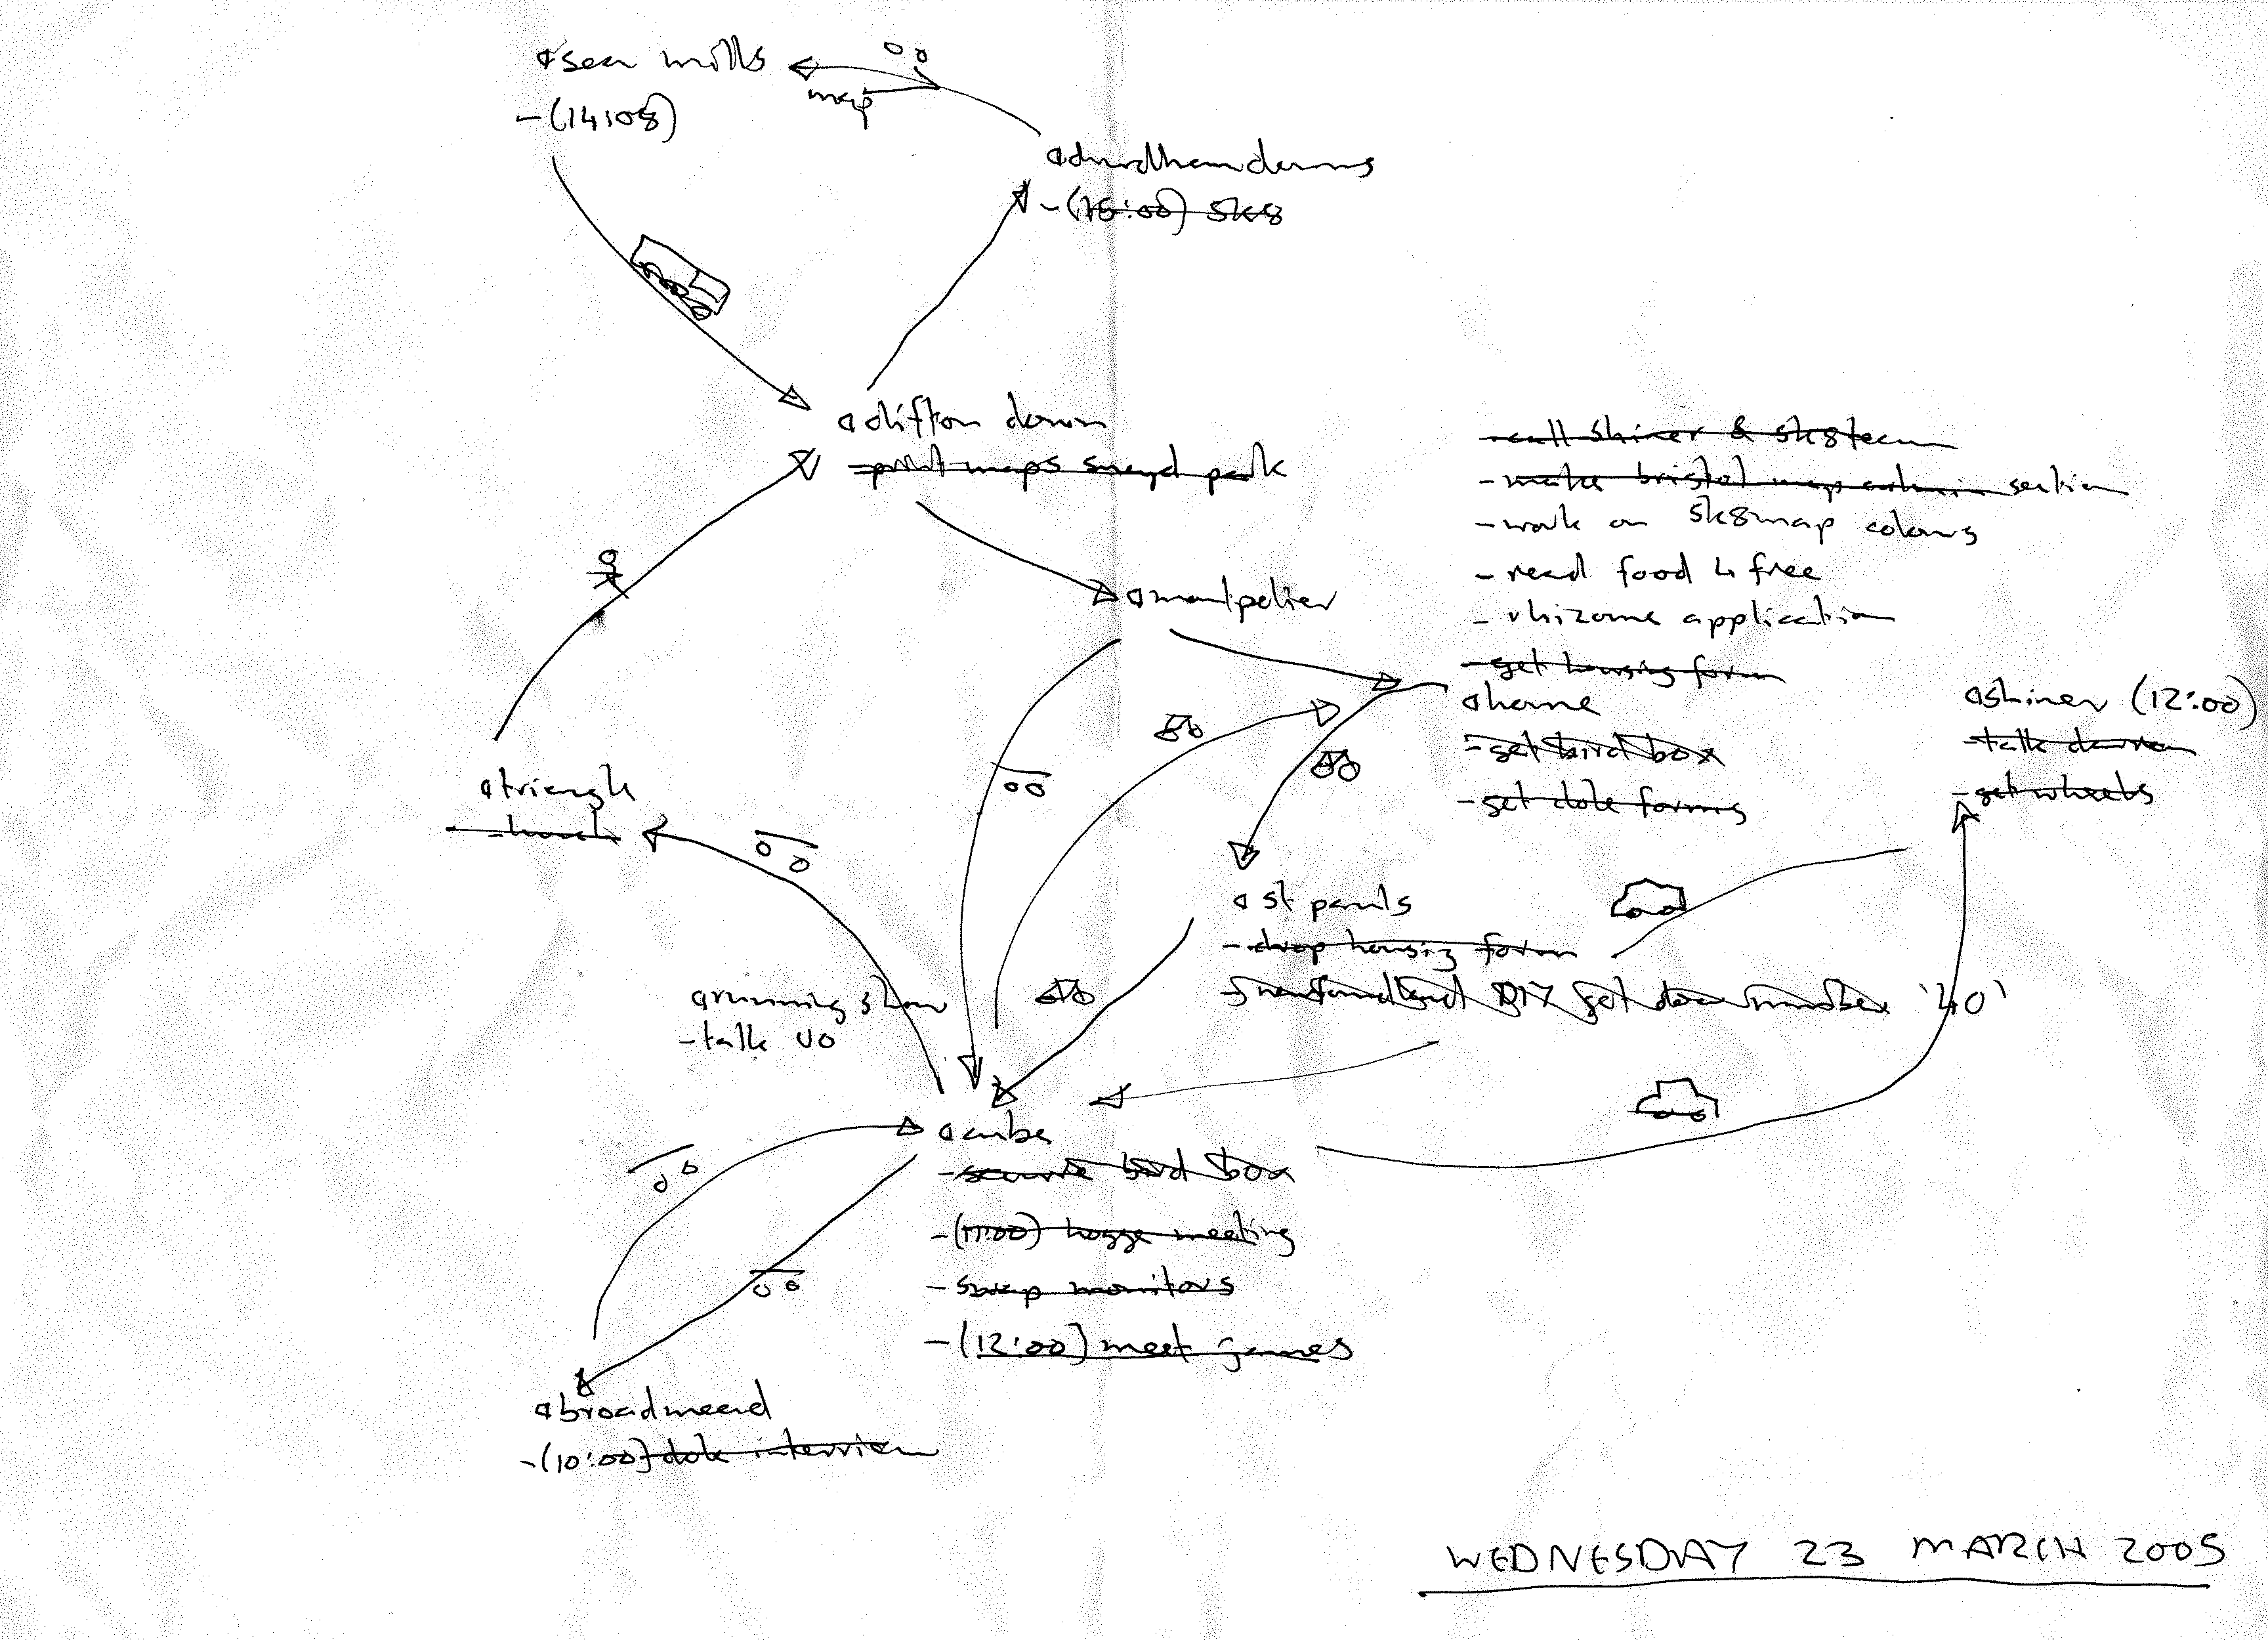 @sea mills
-(14:08)
map
@durdham downs
-(15:00) sk8
@clifton down
-print maps sneyd park
@montpelier
-call shiner & sk8team
-make bristol map section
-work on sk8map colours
-read food 4 free
-rhizome application
-get housing form
@home
-get bird box
-get dole forms
@shiner (12:00)
-talk
-get wheels
@triangle
@st pauls
-drop housing form
-newfoundland get door number '40'
@running show
-talk
@cube
-secure bird box
-(11:00) meeting
-swap monitors
-(12:00) meet james
@broadmead
-(10:00) dole interview
WEDNESDAY 23 MARCH 2005